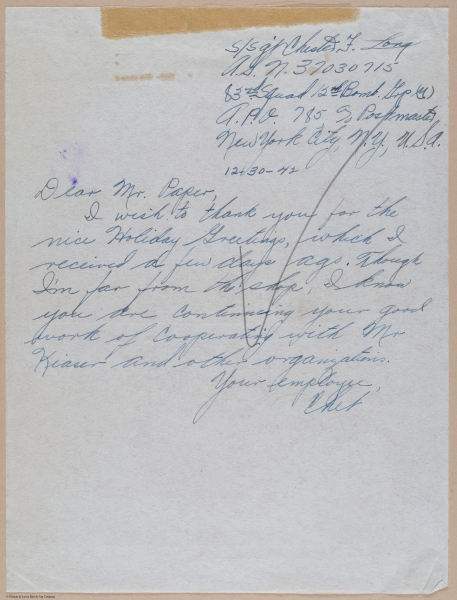 S/Sgt Chester F. Long
A.S.N. 37030715
83rd Squad 12th Bomb. Grp (M)
A.P.O. 785, % Postmaster
New York City, N.Y., U.S.A.
12-30-42
Dear Mr. Paper,
I wish to thank you for the
nice Holiday Greetings, which I
received a few days ago. Though
I'm far from the shop, I know
you are continuing your good
work of cooperating with Mr
Kiaser and other organizations.
Your employee,
Chet